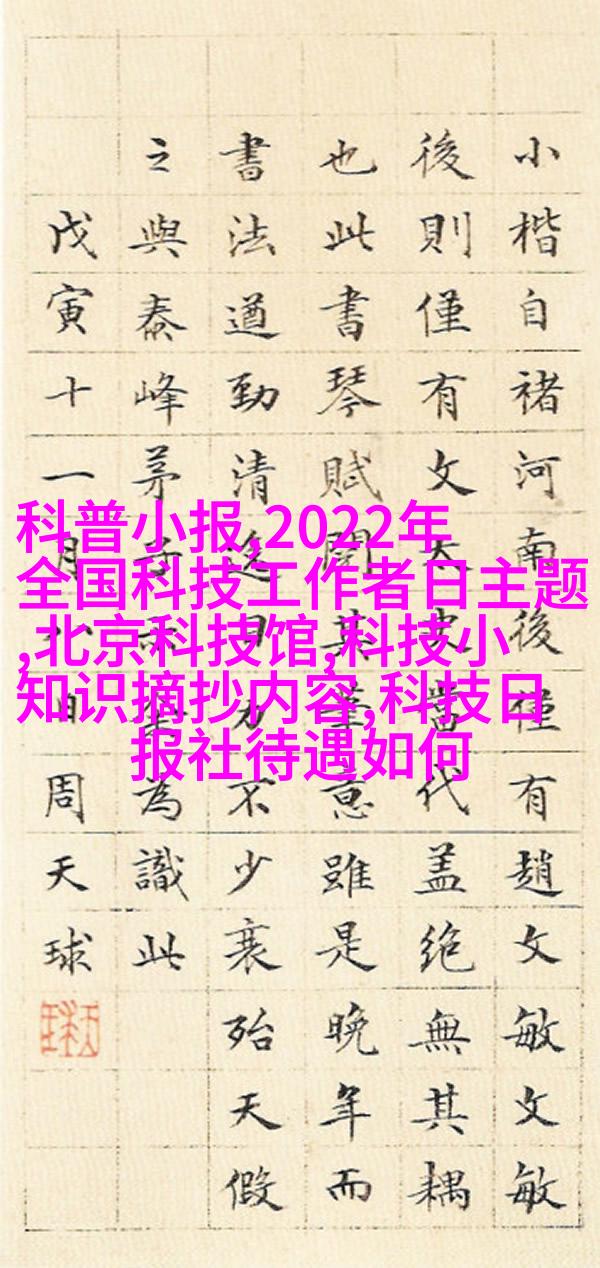 科普小报,2022年
全国科技工作者日主题
,北京科技馆,科技小
知识摘抄内容,科技日
报社待遇如何
小楷自褚河南後僅有趙文敏文敏
後則僅有文太史當代盖絶無其耦
也此書琴賦閱其筆意雖是晚年而
書法遒勁清逸目力不少衰殆天假
之與泰峰茅子為識此
戊寅十一月八日周天球